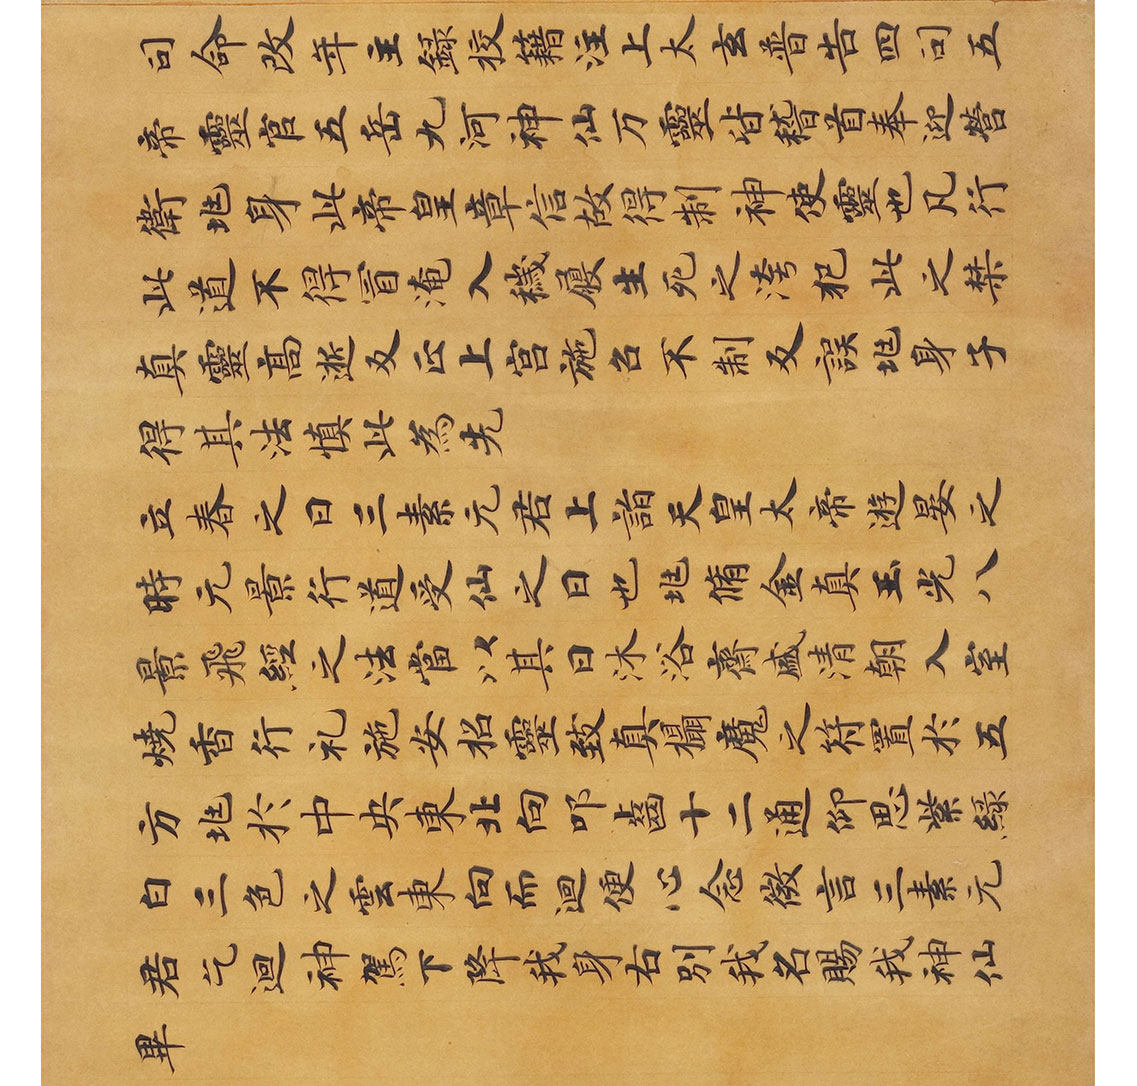 司命改年主錄校籍注上太玄普告四司五
帝靈官五岳九河神仙万靈皆稽首奉迎營
衛兆身此帝皇章信故得制神使靈也凡行
此道不得冒淹入穢履生死之洿犯此之禁
真靈高逝反正上宮施召不制反誤兆身子
得其法慎此為先
立春之日三素元君上詣天皇太帝遊晏之
時元景行道受仙之日也兆脩金真玉光八
景飛經之法當以其日沐浴齋盛清朝入室
燒香行礼施安招靈致真攝魔之符置於五
方兆於中央東北向叩齒十二通仰思紫綠
白三色之雲東向而迴便心念微言三素元
君乞迴神駕下降我身右別我名賜我神仙
畢